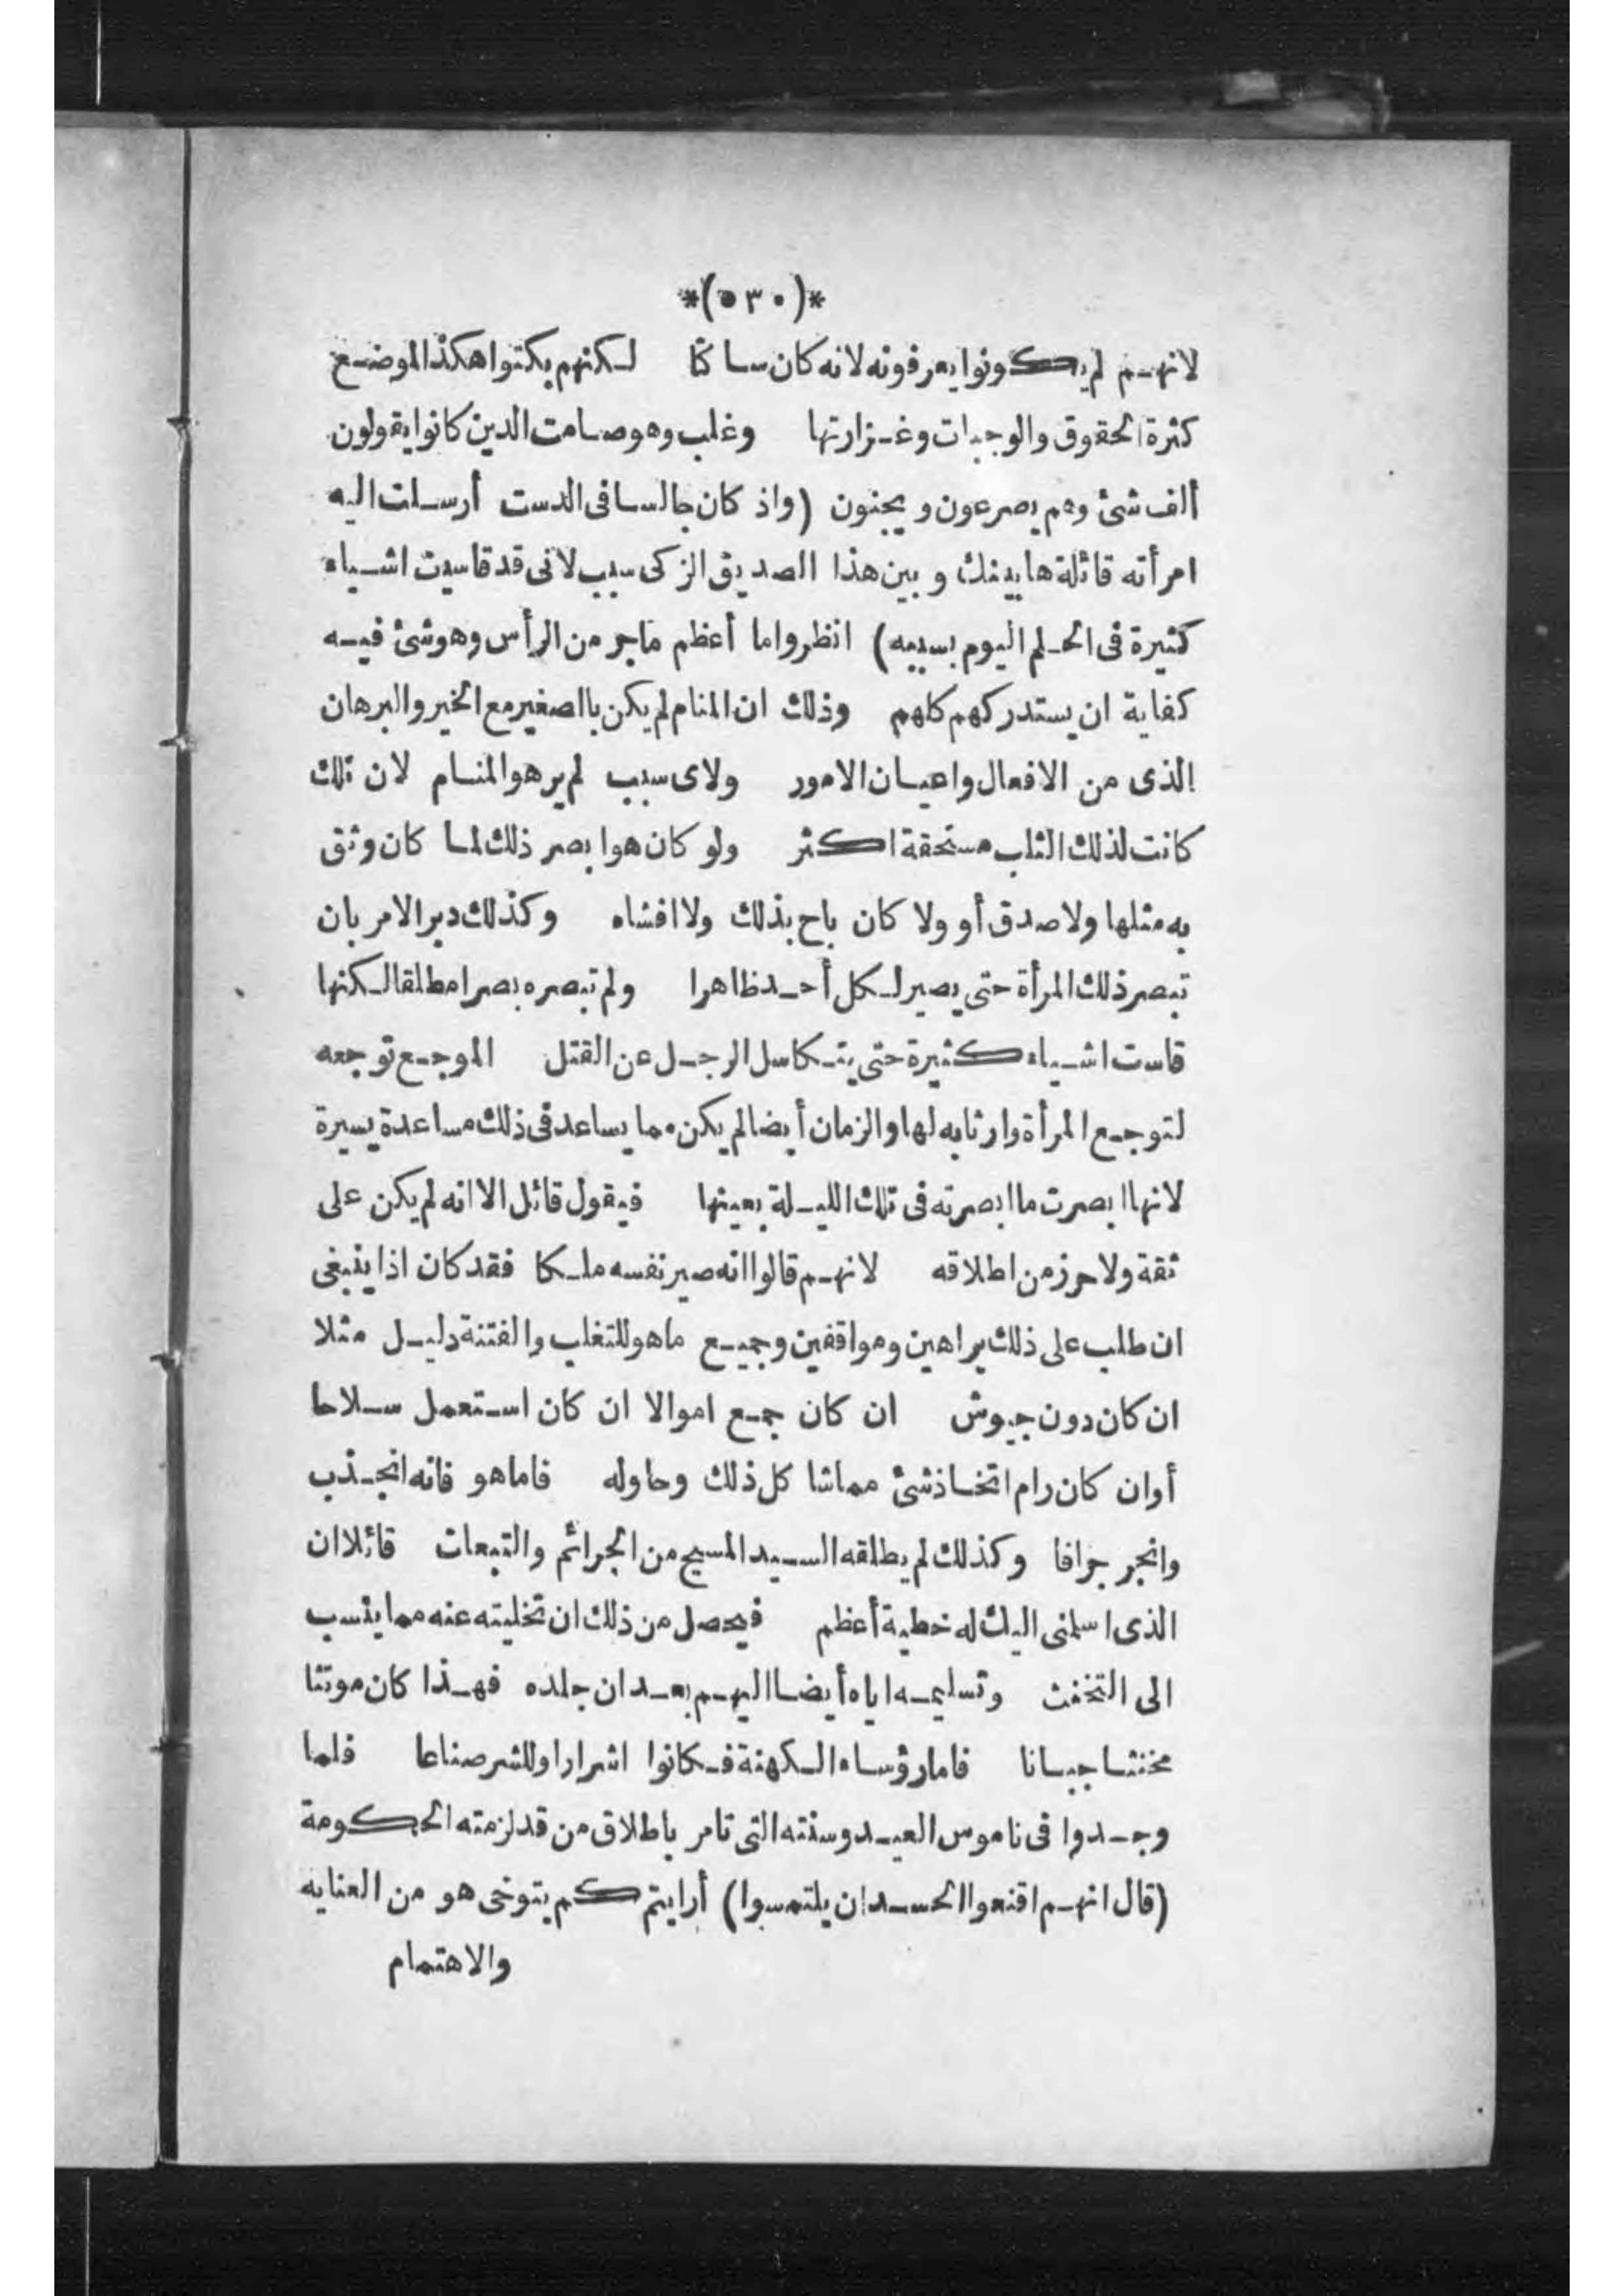 *(٥٣٠)*
لانهم لم يكونوا يعرفونه لانه كان ساكتا لكنهم بكتوا هكذا لموضع
كثرة الحقوق والوجبات وغزارتها وغلب وهو صامت الدين كانوا يقولون
ألف شئ وهم يصرعون ويجنون (واذ كان جالسا فى الدست أرسلت اليه
امرأته قائلة ها بينك وبين هذا الصديق الزكى سبب لانى قد قاسيت اشياء
كثيرة فى الحلم اليوم بسببه) انظروا ما أعظم ماجر من الرأس وهو شئ فيه
كفاية ان يستدركهم كلهم وذلك ان المنام لم يكن باالصغير مع الخبر والبرهان
الذى من الافعال واعيان الامور ولاى سبب لم ير هو المنام لان تلك
كانت لذلك الثلب مستحقة اكثر ولو كان هو ابصر ذلك لما كان وثق
به مثلها ولا صدق أو ولا كان باح بذلك ولا افشاه وكذلك دبر الامر بان
تبصر ذلك المرأة حتى يصير لكل أحد ظاهرا ولم تبصره بصرا مطلقا لكنها
قاست اشياء كثيرة حتى يتكاسل الرجل عن القتل الموجع توجعه
لتوجع المرأة وارثايه لها والزمان أيضا لم يكن مما يساعد فى ذلك مساعدة يسيرة
لانها ابصرت ما ابصرته فى تلك الليلة بعينها فيقول قائل الا انه لم يكن على
ثقة ولا حرز من اطلاقه لانهم قالوا انه صير نفسه ملكا فقد كان اذا ينبغى
ان طلب على ذلك براهين ومواقفين وجميع ما هو للتغلب والفتنة دليل مثلا
ان كان دون جيوش ان كان جمع اموالا ان كان استعمل سلاحا
أوان كان رام اتخاذ شئ مماشا كل ذلك وحاوله فاما هو فانه انجذب
وانجر جرافا وكذلك لم يطلقه السيد المسيح من الجرائم والتبعات قائلا ان
الذى اسلمنى اليك له خطية أعظم فيحصل من ذلك ان تخليته عنه مما ينسب
الى التخنث وتسليمه اياه أيضا اليهم بعد ان جلده فهذا كان موتثا
مخنثا جبانا فاما رؤساء الكهنة فكانوا اشرارا وللشر صناعا فلما
وجدوا فى ناموس العيد وسنته التى تامر باطلاق من قد لزمته الحكومة
(قال انهم اقنعوا الحسد ان يلتمسوا) أرايتم كم يتوخى هو من العنايه
والاهتمام